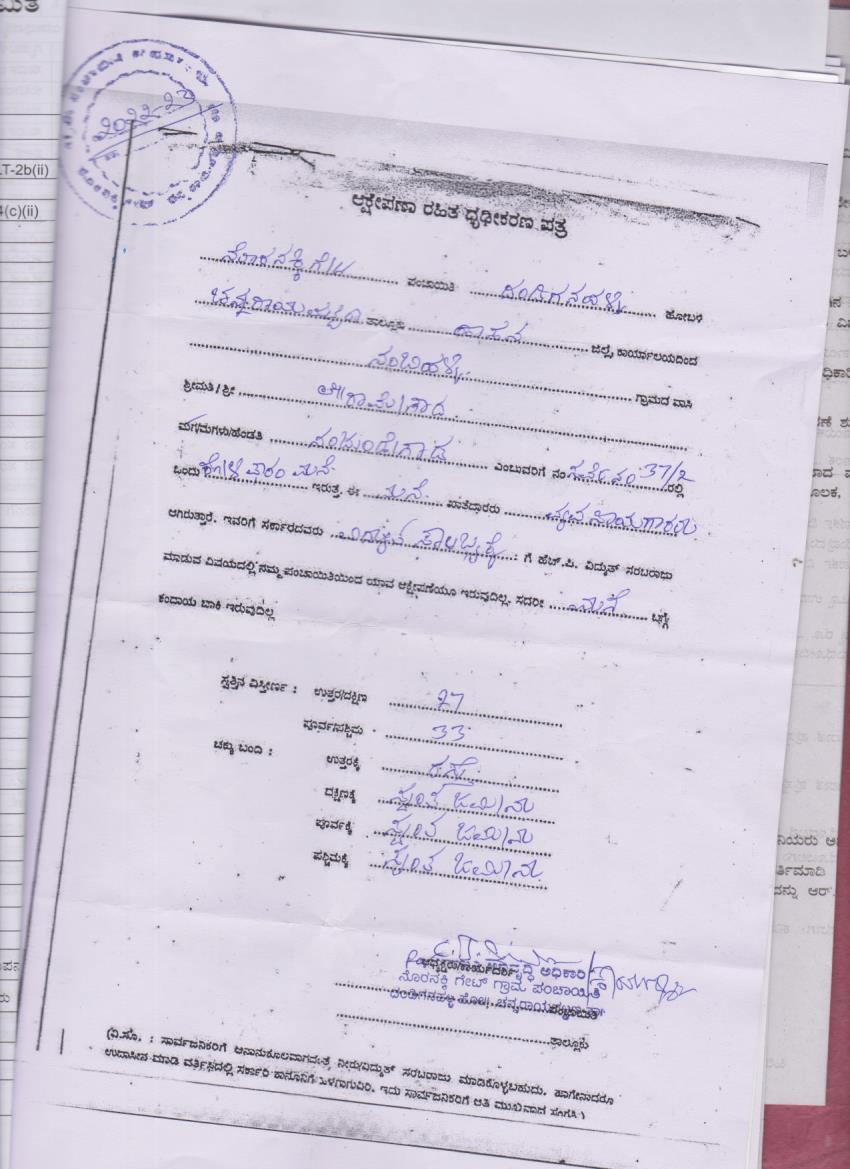 2022-23
T-2b(ii)
(c)(ii)
ಆಕ್ಷೇಪಣಾ ರಹಿತ ಧೃಢೀಕರಣ ಪತ್ರ
ನೊರನಕ್ಕಿ ಗೇಟ್ ಪಂಚಾಯಿತಿ ದಂಡಿಗನಹಳ್ಳಿ ಹೋಬಳಿ
ಚನ್ನರಾಯಪಟ್ಟಣ ತಾಲ್ಲೂಕು ಹಾಸನ ಜಿಲ್ಲೆ, ಕಾರ್ಯಾಲಯದಿಂದ
ನಂಬಿಹಳ್ಳಿ ಗ್ರಾಮದ ವಾಸಿ
ಶ್ರೀಮತಿ / ಶ್ರೀ
ಮಗ/ಮಗಳು/ಹೆಂಡತಿ ನಂಜುಂಡೇಗೌಡ ಎಂಬುವರಿಗೆ ನಂ ಸರ್ವೆ ನಂ 37/2 ರಲ್ಲಿ
ಒಂದು ಕೋಳಿ ಫಾರಂ ಮನೆ ಇರುತ್ತೆ ಈ ಮನೆ ಖಾತೆದಾರರು
ಆಗಿರುತ್ತಾರೆ. ಇವರಿಗೆ ಸರ್ಕಾರದವರು ವಿದ್ಯುತ್ ಸೌಲಭ್ಯಕ್ಕೆ ಗೆ ಹೆಚ್.ಪಿ. ವಿದ್ಯುತ್ ಸರಬರಾಜು
ಮಾಡುವ ವಿಷಯದಲ್ಲಿ ನಮ್ಮ ಪಂಚಾಯಿತಿಯಿಂದ ಯಾವ ಆಕ್ಷೇಪಣೆಯೂ ಇರುವುದಿಲ್ಲ. ಸದರೀ ಮನೆ ಬಗ್ಗೆ
ಕಂದಾಯ ಬಾಕಿ ಇರುವುದಿಲ್ಲ
ಸ್ವತ್ತಿನ ವಿಸ್ತೀರ್ಣ : ಉತ್ತರ/ದಕ್ಷಿಣ 27
ಪೂರ್ವ/ಪಶ್ಚಿಮ 33
ಚಕ್ಕು ಬಂದಿ : ಉತ್ತರಕ್ಕೆ ರಸ್ತೆ
ದಕ್ಷಿಣಕ್ಕೆ ಸ್ವಂತ ಜಮೀನು
ಪೂರ್ವಕ್ಕೆ ಸ್ವಂತ ಜಮೀನು
ಪಶ್ಚಿಮಕ್ಕೆ ಸ್ವಂತ ಜಮೀನು
ಅಧ್ಯಕ್ಷರು/ಕಾರ್ಯದರ್ಶಿ
ನೊರನಕ್ಕಿ ಗೇಟ್ ಗ್ರಾಮ ಪಂಚಾಯಿತಿ
ದಂಡಿಗನಹಳ್ಳಿ ಹೋ|| ಚನ್ನರಾಯಪಟ್ಟಣ ತಾ||
ತಾಲ್ಲೂಕು
(ವಿ.ಸೂ. : ಸಾರ್ವಜನಿಕರಿಗೆ ಅನಾನುಕೂಲವಾಗದಂತೆ ನೀರು/ವಿದ್ಯುತ್ ಸರಬರಾಜು ಮಾಡಿಕೊಳ್ಳಬಹುದು. ಹಾಗೇನಾದರೂ
ಉದಾಸೀನ ಮಾಡಿ ವರ್ತಿಸಿದಲ್ಲಿ ಸರ್ಕಾರಿ ಕಾನೂನಿಗೆ ಒಳಗಾಗುವಿರಿ. ಇದು ಸಾರ್ವಜನಿಕರಿಗೆ ಅತಿ ಮುಖ್ಯವಾದ ಸಂಗತಿ)